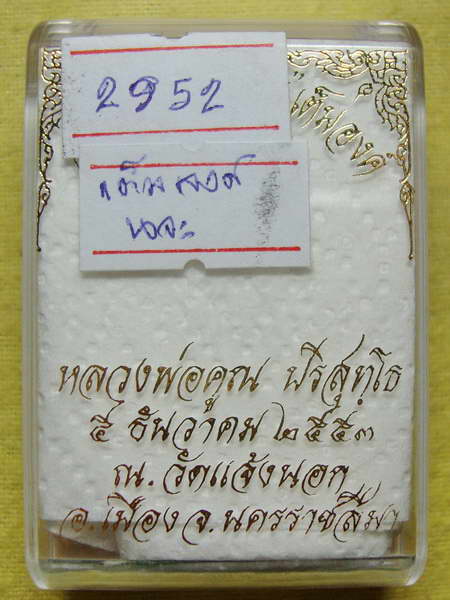 2952
เต็มองค์
เต็มองค์
นวะ
หลวงพ่อคูณ ปริสุทฺโธ
๕ ธันวาคม ๒๕๕๓
ณ. วัดแจ้งนอก
อ.เมือง จ.นครราชสีมา